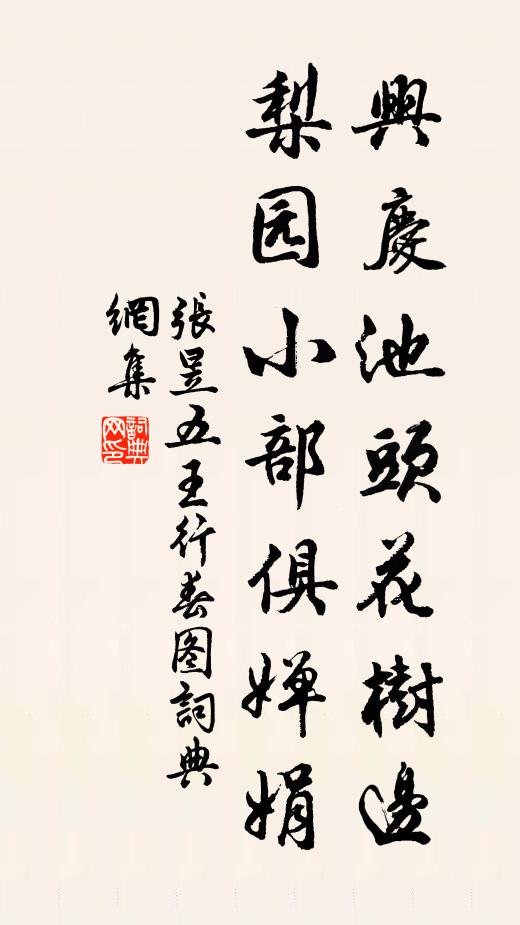 興慶池頭花樹邊
梨园小部俱婵娟
張昱五王行春图詞典
網集
詞典
网印